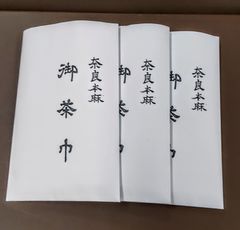 奈良本麻
御茶巾
奈良本麻
御茶巾
奈良本麻
御茶巾